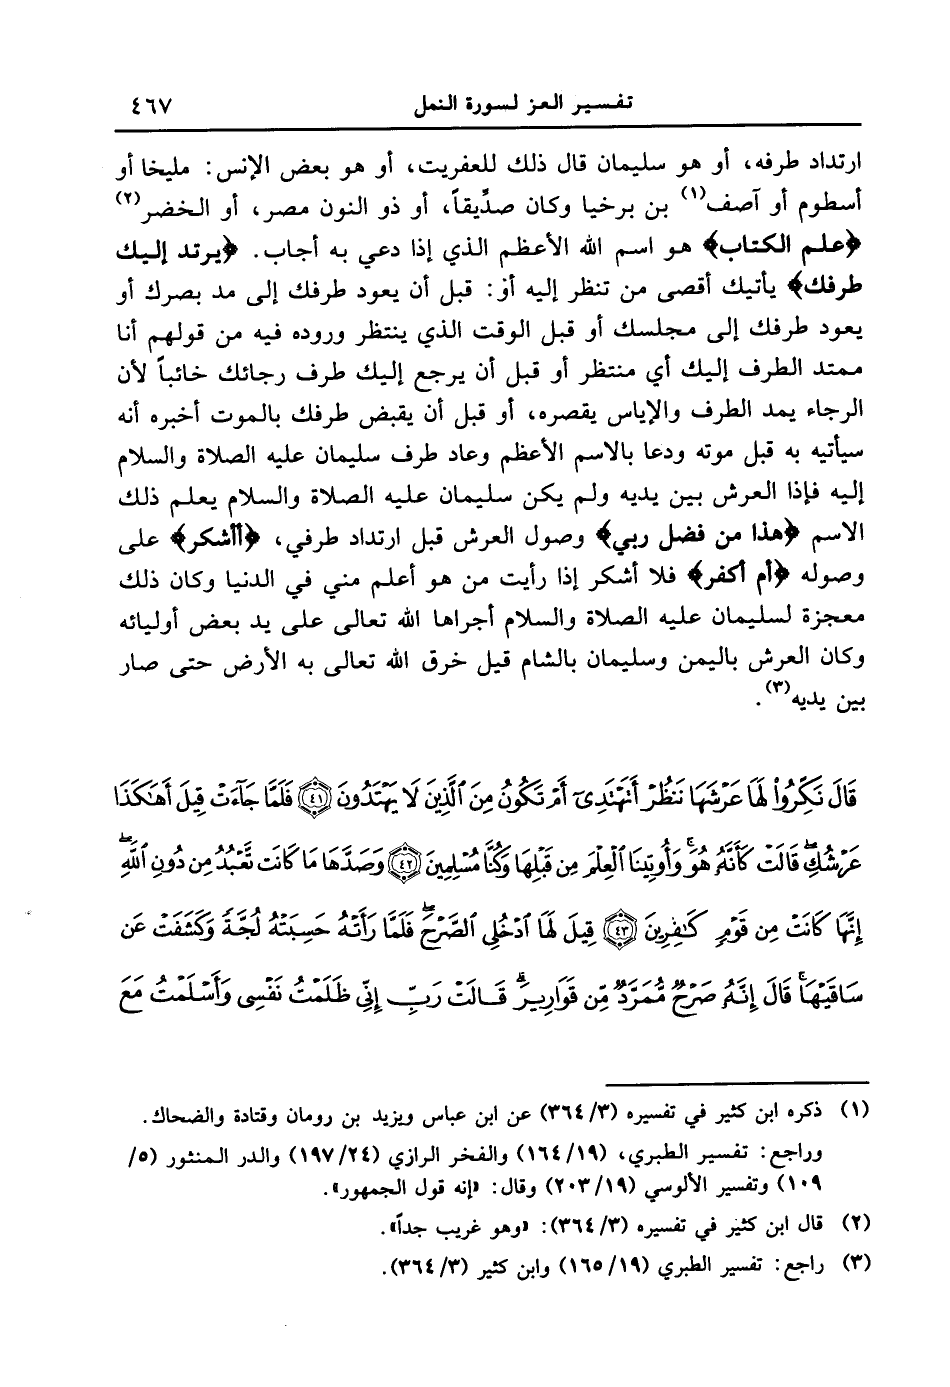 تفسير العز لسورة النمل ٤٦٧
ارتداد طرفه، أو هو سليمان قال ذلك للعفريت، أو هو بعض الإنس: مليخا أو
أسطوم أو آصف(١) بن برخيا وكان صدِّيقاً، أو ذو النون مصر، أو الخضر(٢)
﴿علم الكتاب﴾ هو اسم الله الأعظم الذي إذا دعي به أجاب. ﴿يرتد إليك
طرفك﴾ يأتيك أقصى من تنظر إليه أوْ: قبل أن يعود طرفك إلى مد بصرك أو
يعود طرفك إلى مجلسك أو قبل الوقت الذي ينتظر وروده فيه من قولهم أنا
ممتد الطرف إليك أي منتظر أو قبل أن يرجع إليك طرف رجائك خائباً لأن
الرجاء يمد الطرف والإياس يقصره، أو قبل أن يقبض طرفك بالموت أخبره أنه
سيأتيه به قبل موته ودعا بالاسم الأعظم وعاد طرف سليمان عليه الصلاة والسلام
إليه فإذا العرش بين يديه ولم يكن سليمان عليه الصلاة والسلام يعلم ذلك
الاسم ﴿هذا من فضل ربي﴾ وصول العرش قبل ارتداد طرفي، ﴿أأشكر﴾ على
وصوله ﴿أم أكفر﴾ فلا أشكر إذا رأيت من هو أعلم مني في الدنيا وكان ذلك
معجزة لسليمان عليه الصلاة والسلام أجراها الله تعالى على يد بعض أوليائه
وكان العرش باليمن وسليمان بالشام قيل خرق الله تعالى به الأرض حتى صار
بين يديه(٣).
قَالَ نَكِّرُوا۟ لَهَا عَرْشَهَا نَنظُرْ أَتَهْتَدِىٓ أَمْ تَكُونُ مِنَ ٱلَّذِينَ لَا يَهْتَدُونَ ٤١ فَلَمَّا جَآءَتْ قِيلَ أَهَٰكَذَا
عَرْشُكِ ۖ قَالَتْ كَأَنَّهُۥ هُوَ ۚ وَأُوتِينَا ٱلْعِلْمَ مِن قَبْلِهَا وَكُنَّا مُسْلِمِينَ ٤٢ وَصَدَّهَا مَا كَانَت تَّعْبُدُ مِن دُونِ ٱللَّهِ ۖ
إِنَّهَا كَانَتْ مِن قَوْمٍ كَٰفِرِينَ ٤٣ قِيلَ لَهَا ٱدْخُلِى ٱلصَّرْحَ ۖ فَلَمَّا رَأَتْهُ حَسِبَتْهُ لُجَّةً وَكَشَفَتْ عَن
سَاقَيْهَا ۚ قَالَ إِنَّهُۥ صَرْحٌ مُّمَرَّدٌ مِّن قَوَارِيرَ ۗ قَالَتْ رَبِّ إِنِّى ظَلَمْتُ نَفْسِى وَأَسْلَمْتُ مَعَ
(١) ذكره ابن كثير في تفسيره (٣/ ٣٦٤) عن ابن عباس ويزيد بن رومان وقتادة والضحاك.
وراجع: تفسير الطبري، (١٩/ ١٦٤) والفخر الرازي (٢٤/ ١٩٧) والدر المنثور (٥/
١٠٩) وتفسير الألوسي (١٩/ ٢٠٣) وقال: «إنه قول الجمهور».
(٢) قال ابن كثير في تفسيره (٣/ ٣٦٤): «وهو غريب جداً».
(٣) راجع: تفسير الطبري (١٩/ ١٦٥) وابن كثير (٣/ ٣٦٤).